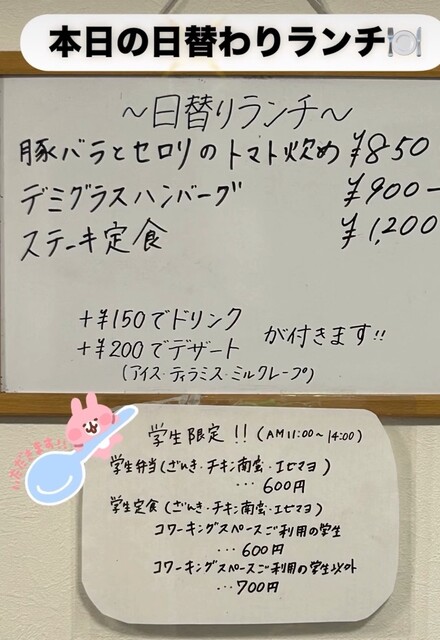 本日の日替わりランチ🍽️
～日替りランチ～
豚バラとセロリのトマト炒め ¥850
デミグラスハンバーグ ¥900-
ステーキ定食 ¥1,200
+¥150でドリンク
+¥200でデザート が付きます!!
(アイス・ティラミス・ミルクレープ)
いただきます!!
学生限定!! (AM11:00~14:00)
学生弁当(ざんき・チキン南蛮・エビマヨ)
… 600円
学生定食(ざんき・チキン南蛮・エビマヨ)
コワーキングスペースご利用の学生
… 600円
コワーキングスペースご利用の学生以外
… 700円